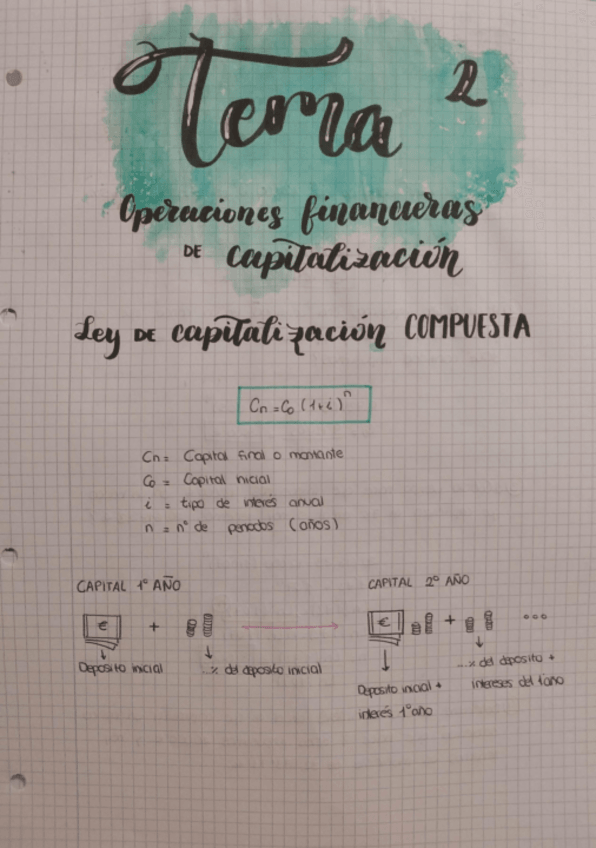 Tema 2
Operaciones financieras
DE capitalización
Ley DE capitalización COMPUESTA
Cn = Co (1+i)^n
Cn = Capital final o montante
Co = Capital inicial
i = tipo de interés anual
n = nº de periodos (años)
CAPITAL 1º AÑO
€ +
Deposito inicial
...% del deposito inicial
CAPITAL 2º AÑO
€ + ...
Deposito inicial +
interés 1º año
...% del deposito +
intereses del 1año